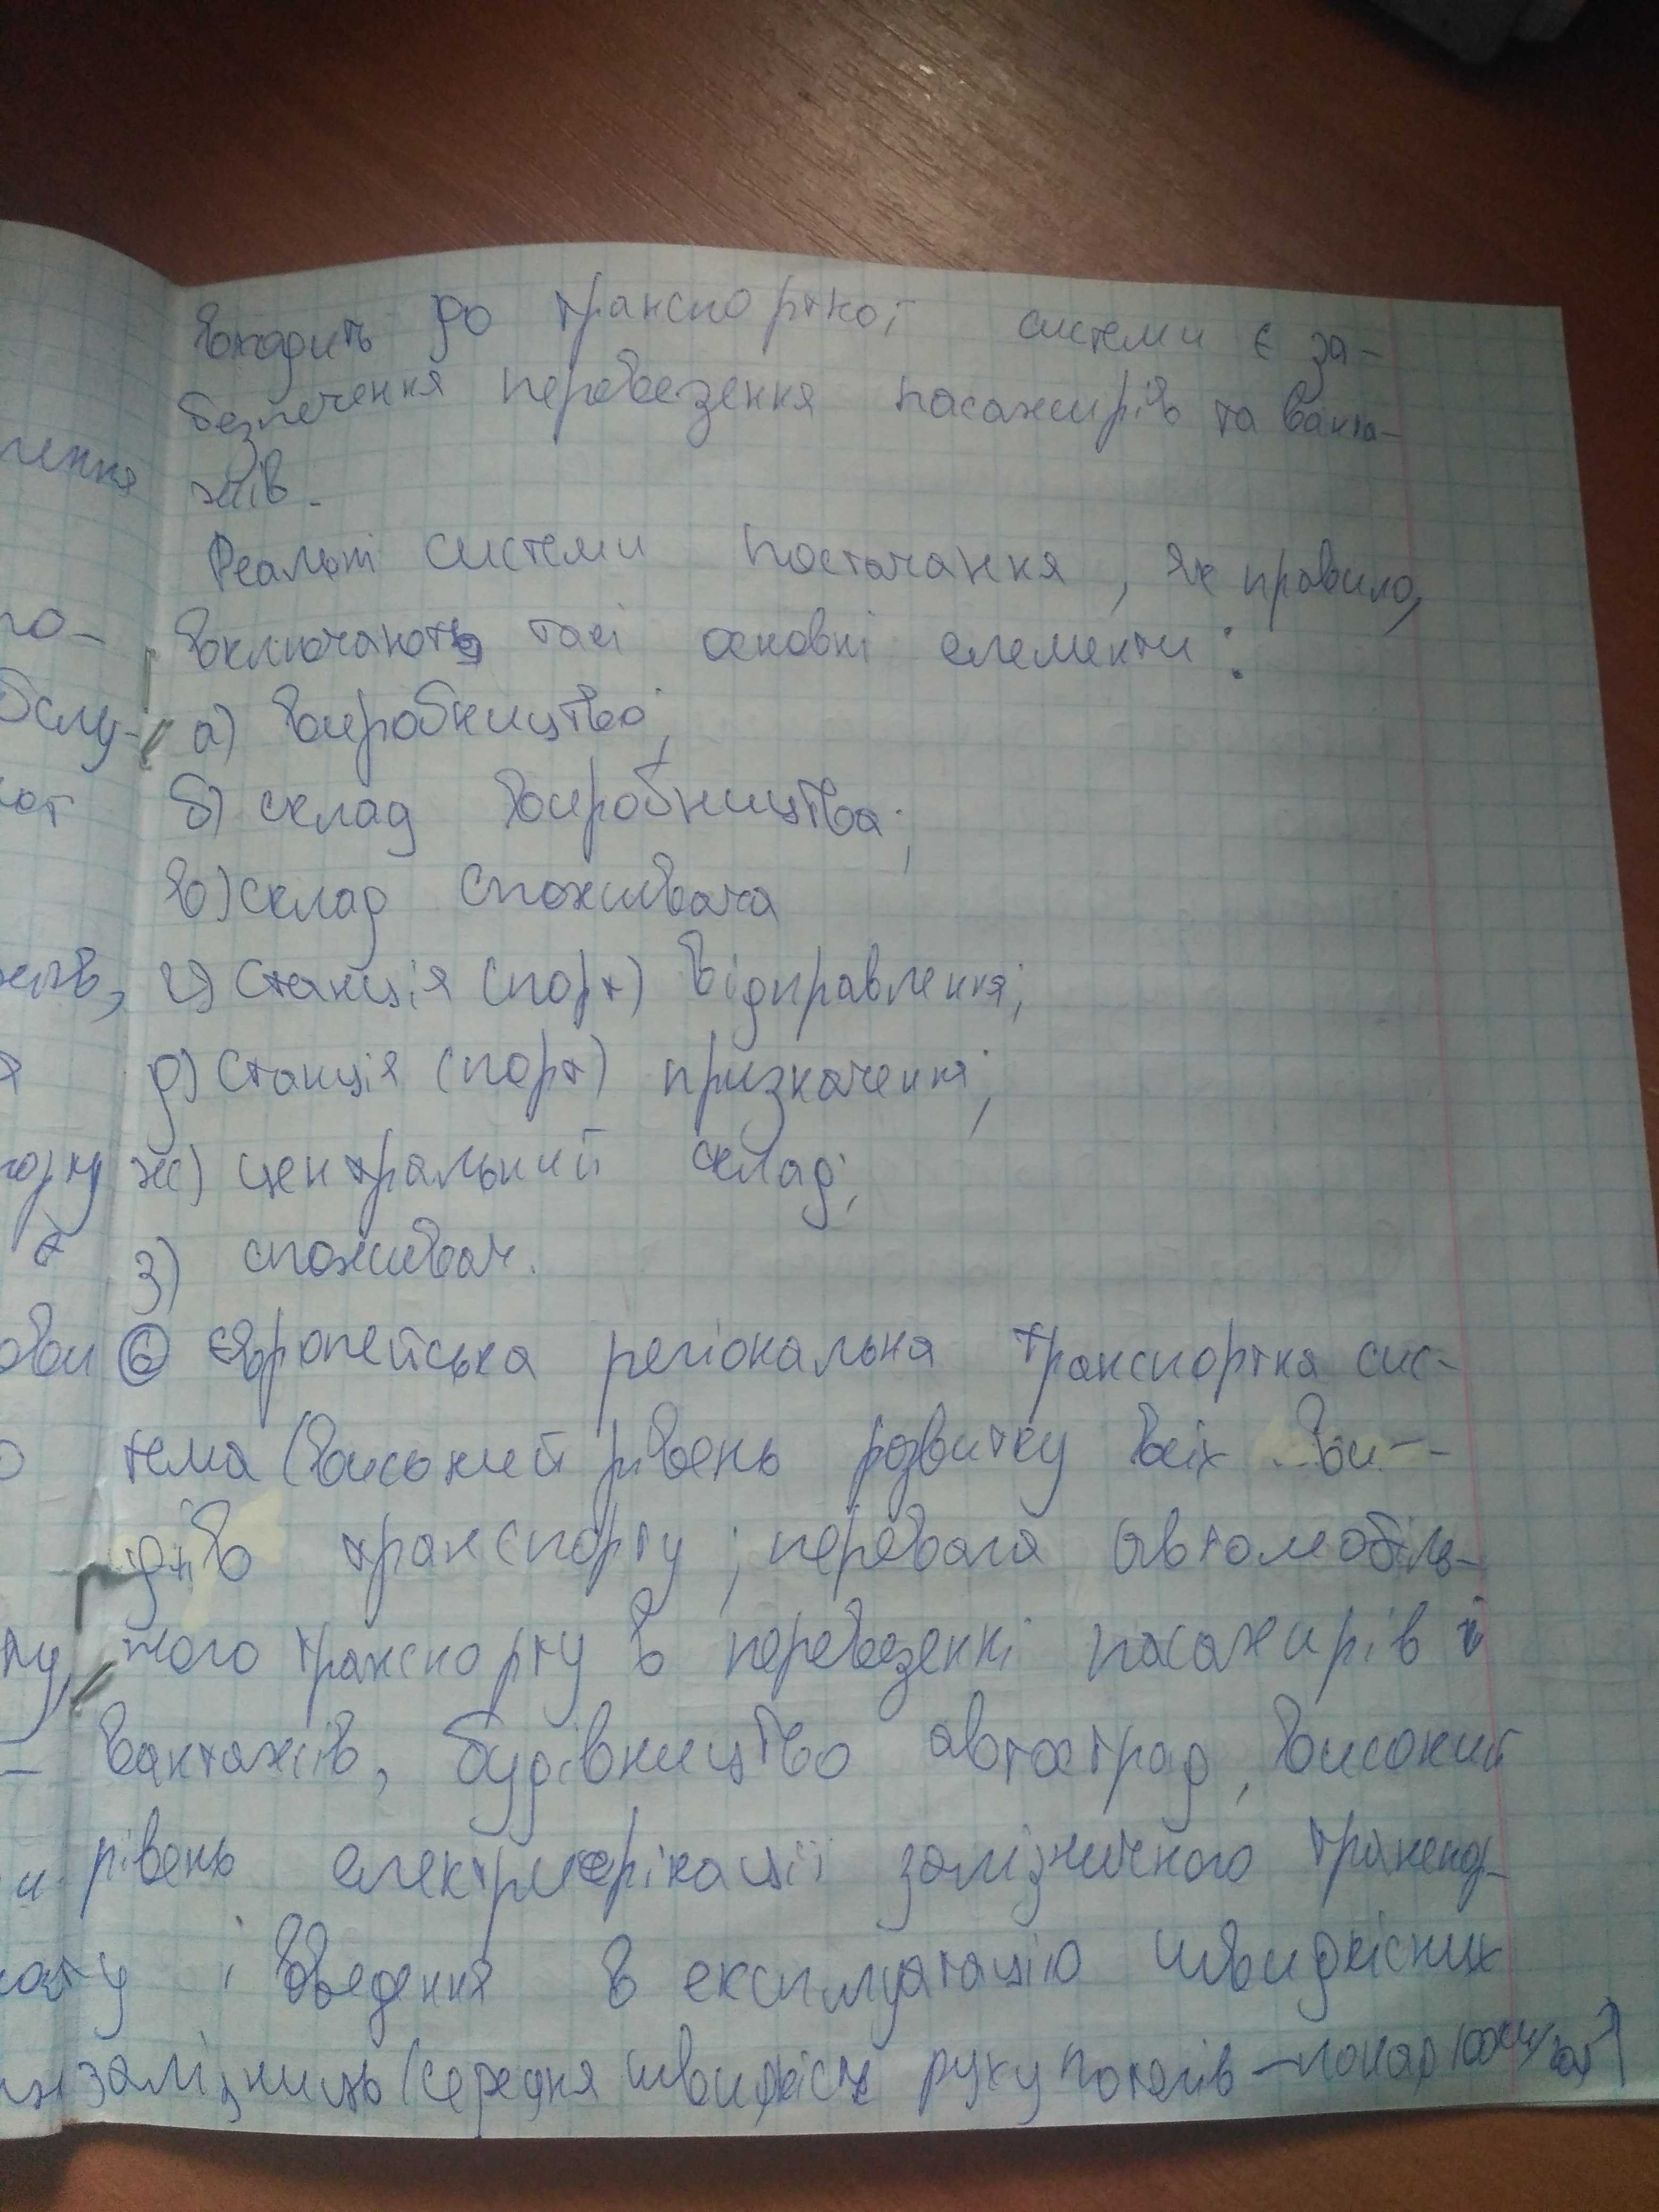 входить до транспортної системи є за-
безпечення перевезення пасажирів та ванта-
жів.
Реальні системи постачання, як правило,
включають такі основні елементи:
а) виробництво;
б) склад виробництва;
в) склад споживача
г) станція (порт) відправлення;
д) станція (порт) призначення;
ж) центральний склад;
з) споживач.
6 Європейська регіональна транспортна сис-
тема (високий рівень розвитку всіх ви-
дів транспорту; перевага автомобіль-
ного транспорту в перевезенні пасажирів і
вантажів, будівництво автострад, високий
рівень електрифікації залізничного транспор-
ту і введення в експлуатацію швидкісних
залізниць (середня швидкість руху потягів – понад 100км/год)